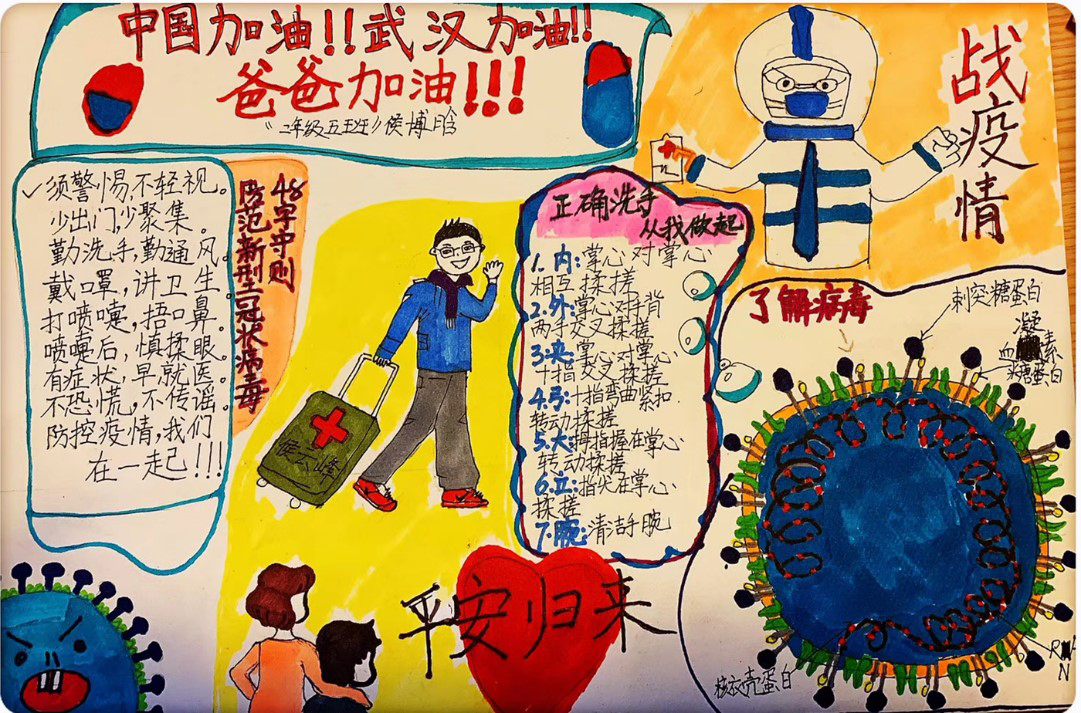 中国加油!!武汉加油!!
爸爸加油!!!
《2年级五班》侯博晗
战疫情
✓须警惕,不轻视。
少出门,少聚集。
勤洗手,勤通风。
戴口罩,讲卫生。
打喷嚏,捂口鼻。
喷嚏后,慎揉眼。
有症状,早就医。
不恐慌,不传谣。
防控疫情,我们
在一起!!!
48字守则
防范新型冠状病毒
侯云峰
正确洗手
从我做起
1.内:掌心对掌心
相互揉搓
2.外:掌心对手背
两手交叉揉搓
3.夹:掌心对掌心
十指交叉揉搓
4.弓:十指弯曲紧扣
转动揉搓
5.大:拇指握在掌心
转动揉搓
6.立:指尖在掌心
揉搓
7.腕:清洁手腕
了解病毒
刺突糖蛋白
血凝素
糖蛋白
核衣壳蛋白
平安归来